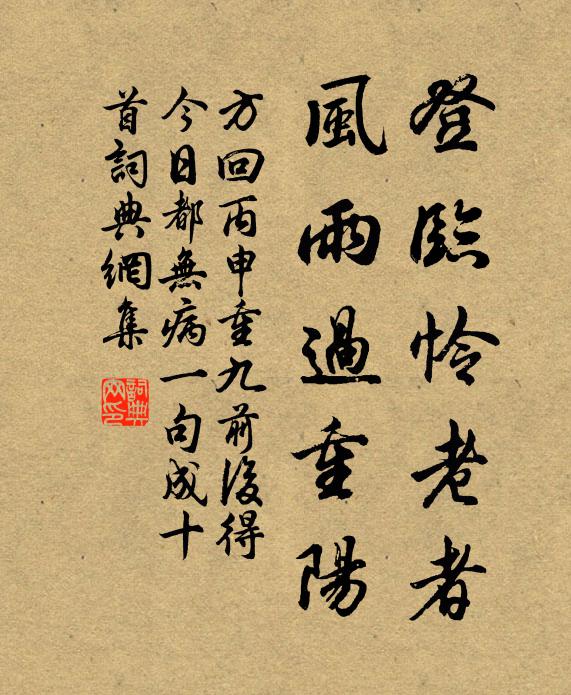 登臨怜老者
風雨過重陽
方回丙申重九前後得
今日都無病一句成十
首詞典網集
詞典網印